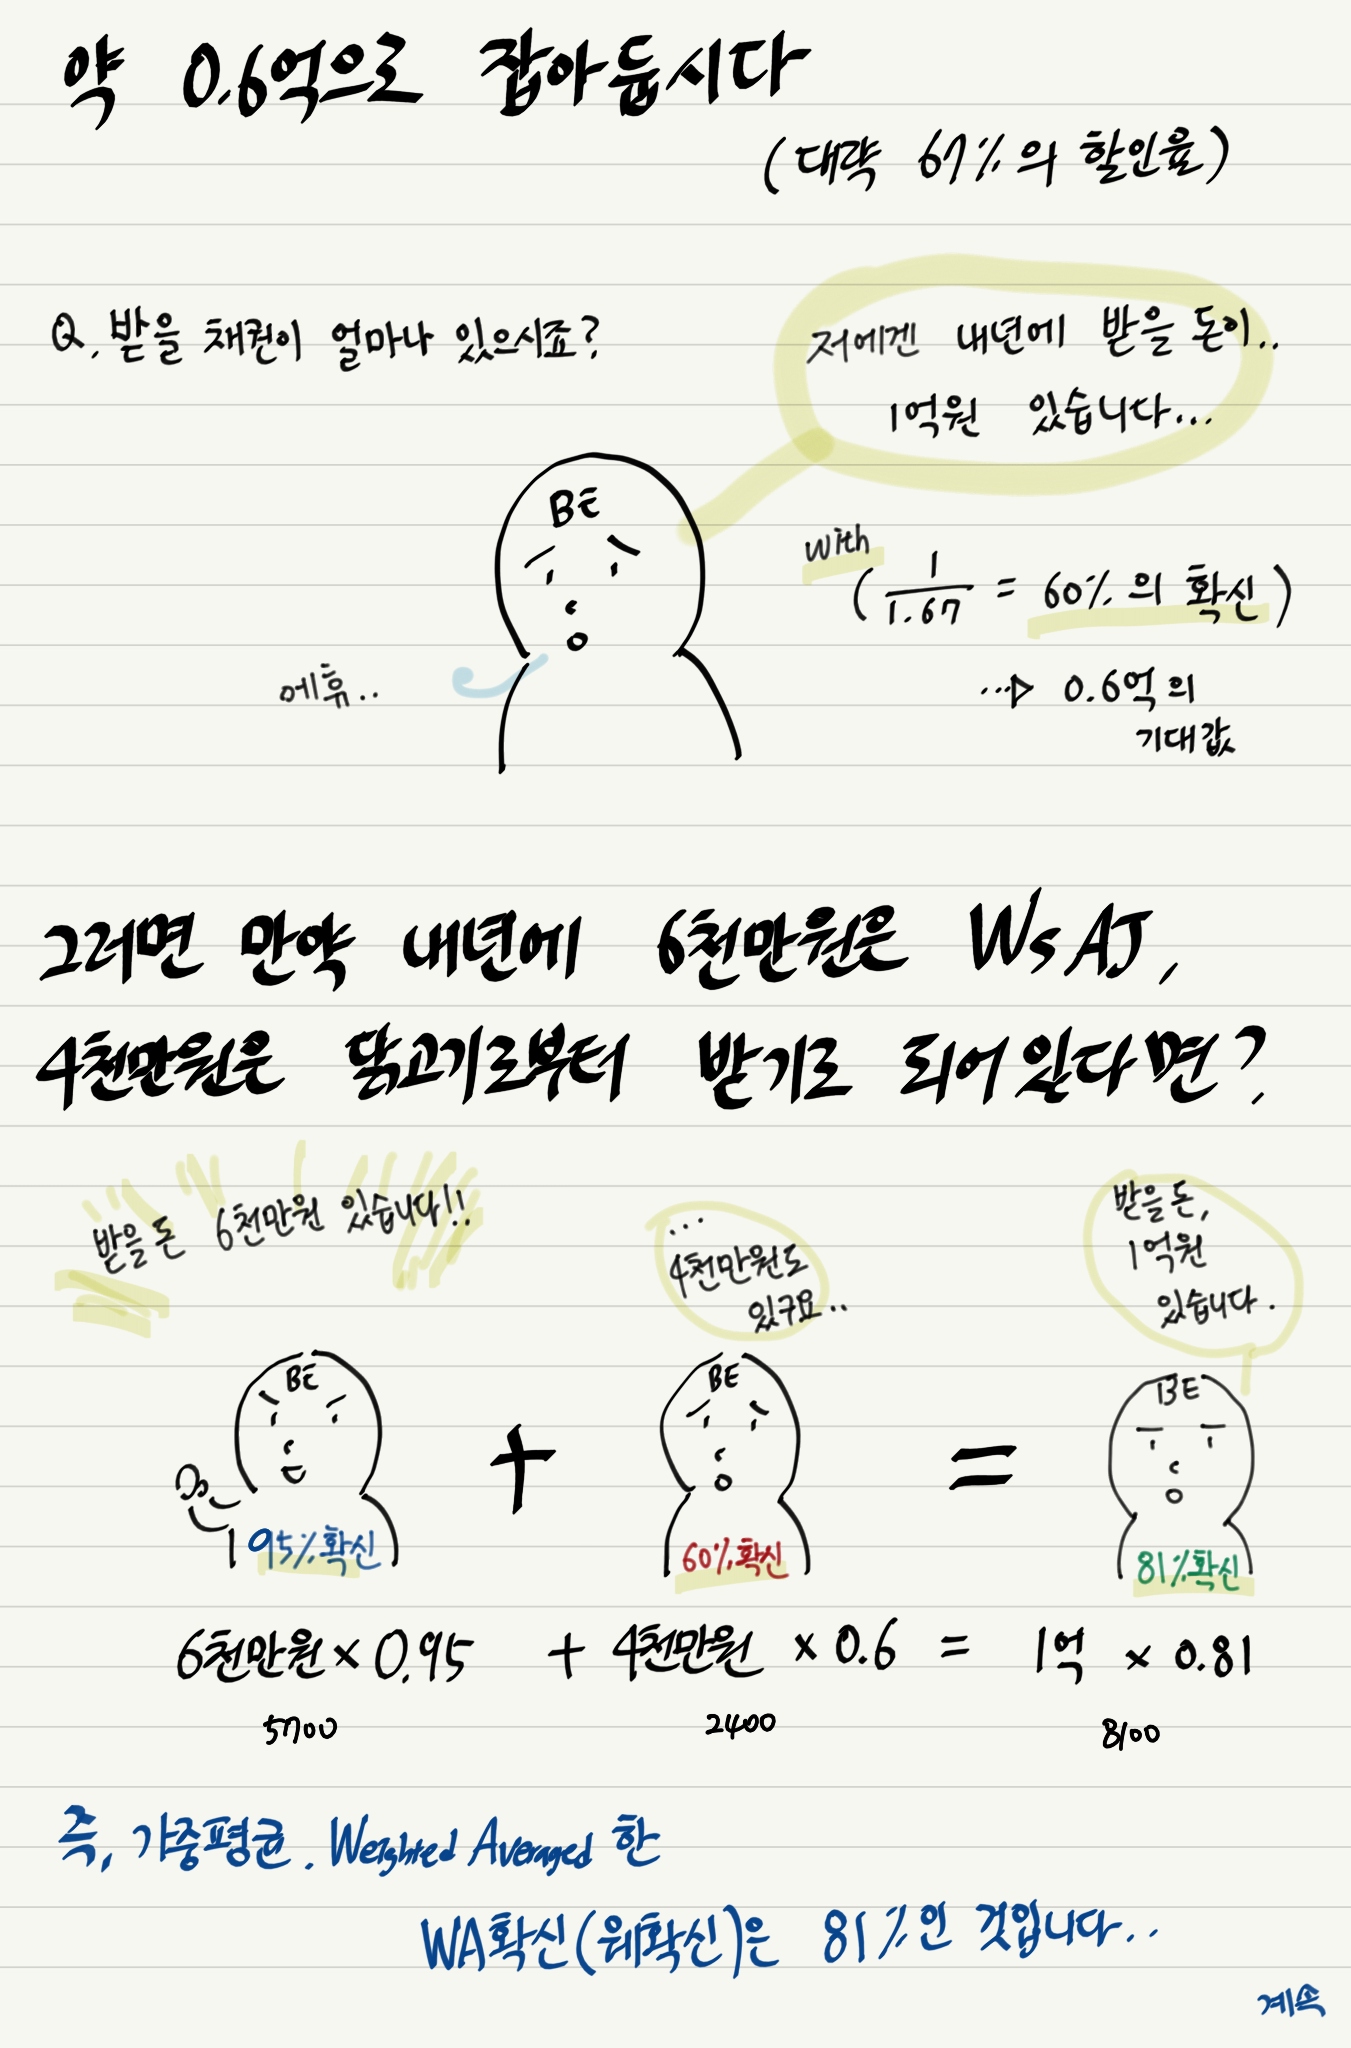 약 0.6억으로 잡아둡시다
(대략 67%의 할인율)
Q. 받을 채권이 얼마나 있으시죠?
저에겐 내년에 받을 돈이..
1억원 있습니다...
BE
with
( 1/1.67 = 60%의 확신 )
에휴..
…▷ 0.6억의
기대값
그러면 만약 내년에 6천만원은 WsAJ,
4천만원은 닭고기로부터 받기로 되어있다면?
받을돈 6천만원 있습니다!!
...
4천만원도
있구요..
받을돈,
1억원
있습니다.
BE
BE
BE
+
=
95%확신
60%확신
81%확신
6천만원 × 0.95 + 4천만원 × 0.6 = 1억 × 0.81
5700
2400
8100
즉, 가중평균. Weighted Averaged 한
WA확신(워확신)은 81%인 것입니다..
계속